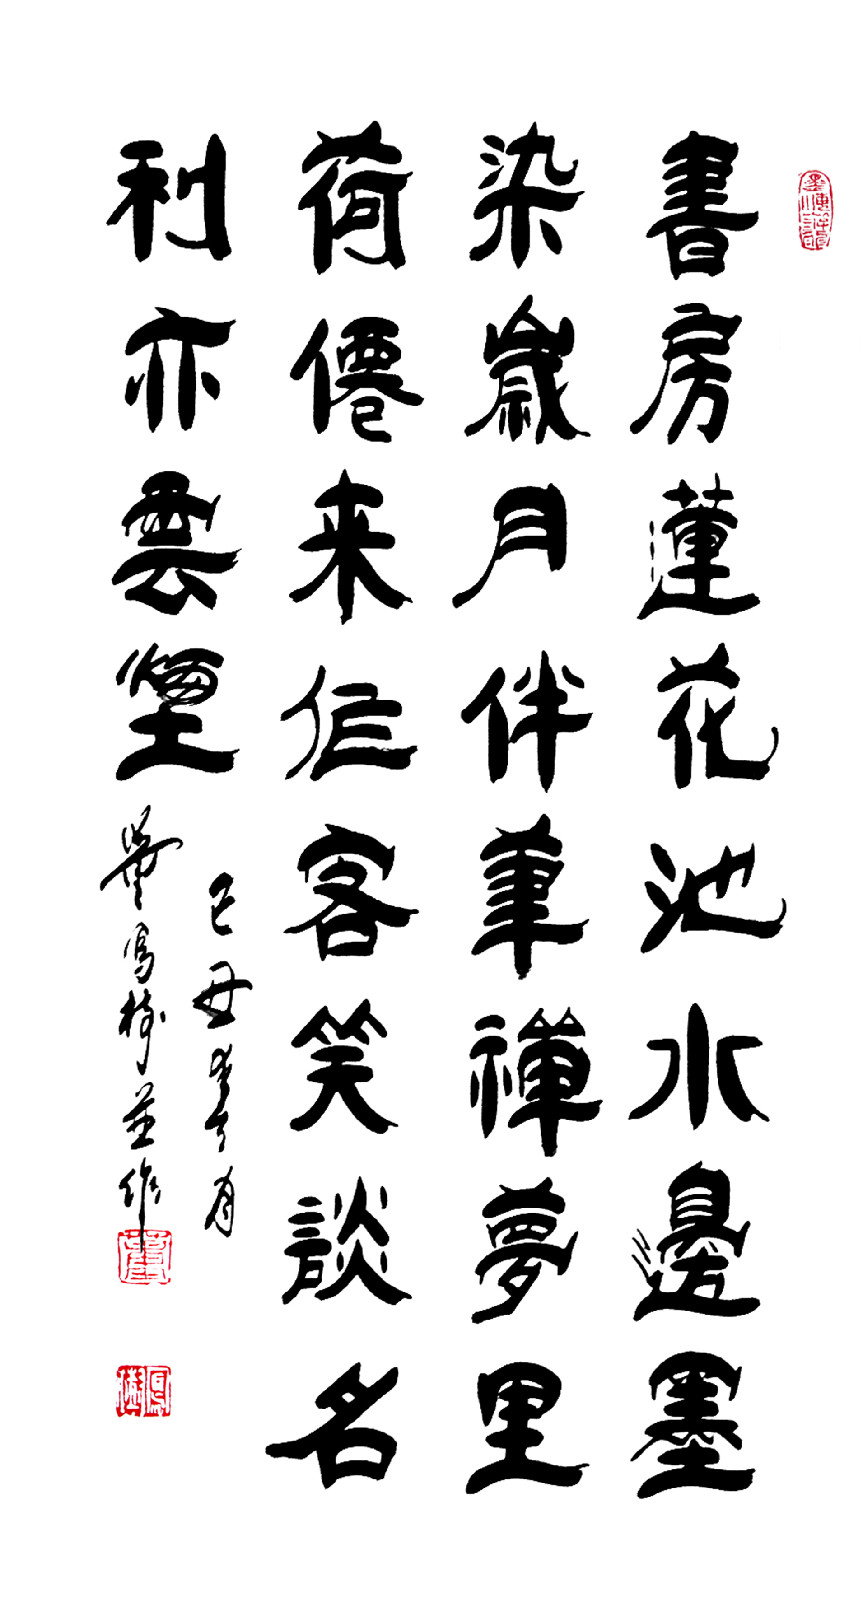 書房蓮花池水邊墨
染歲月伴筆禪夢里
荷僊来作客笑談名
利亦雲煙
己丑月
並作